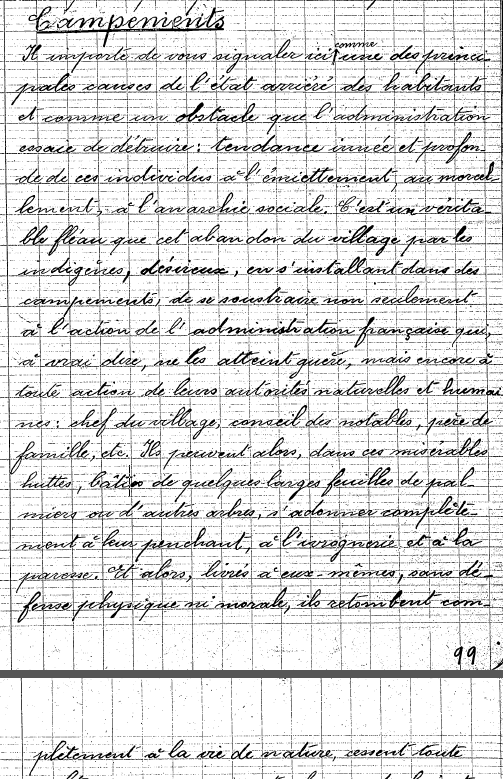 Campements
comme
Il importe de vous signaler ici une des princi-
pales causes de l'état arriéré des habitants
et comme un obstacle que l'administration
essaie de détruire : tendance innée et profon-
de de ces individus à l'émiettement, au morcel-
lement, à l'anarchie sociale. C'est un vérita-
ble fléau que cet abandon du village par les
indigènes, désireux, en s'installant dans des
campements, de se soustraire non seulement
à l'action de l'administration française qui,
à vrai dire, ne les atteint guère, mais encore à
toute action de leurs autorités naturelles et humai
nes : chef du village, conseil des notables, père de
famille, etc. Ils peuvent alors, dans ces misérables
huttes, bâties de quelques larges feuilles de pal-
miers ou d'autres arbres, s'adonner complète-
ment à leur penchant, à l'ivrognerie et à la
paresse. Et alors, livrés à eux-mêmes, sans dé-
fense physique ni morale, ils retombent com-
99
plètement à la vie de nature, cessent toute